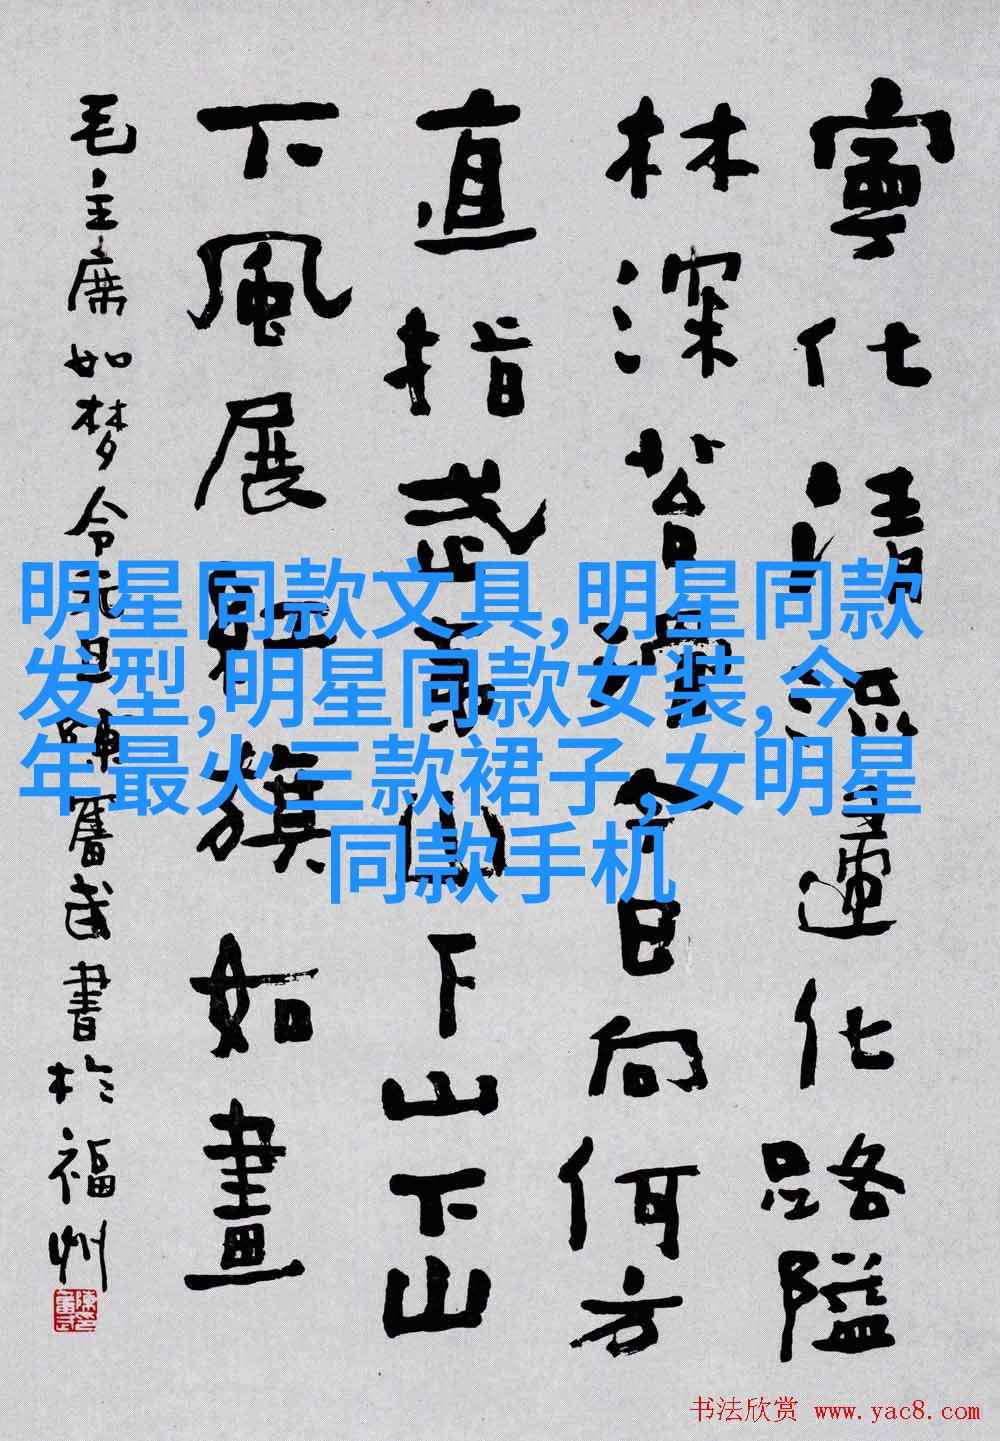 寧化清流化路隘
林深苔滑今日向何方
直指武夷山下山下山
下風展紅旗如畫
毛主席如梦令元旦陳奮武書於福州
明星同款文具,明星同款
发型,明星同款女装,今
年最火三款裙子,女明星
同款手机
书法欣赏 www.yac8.com